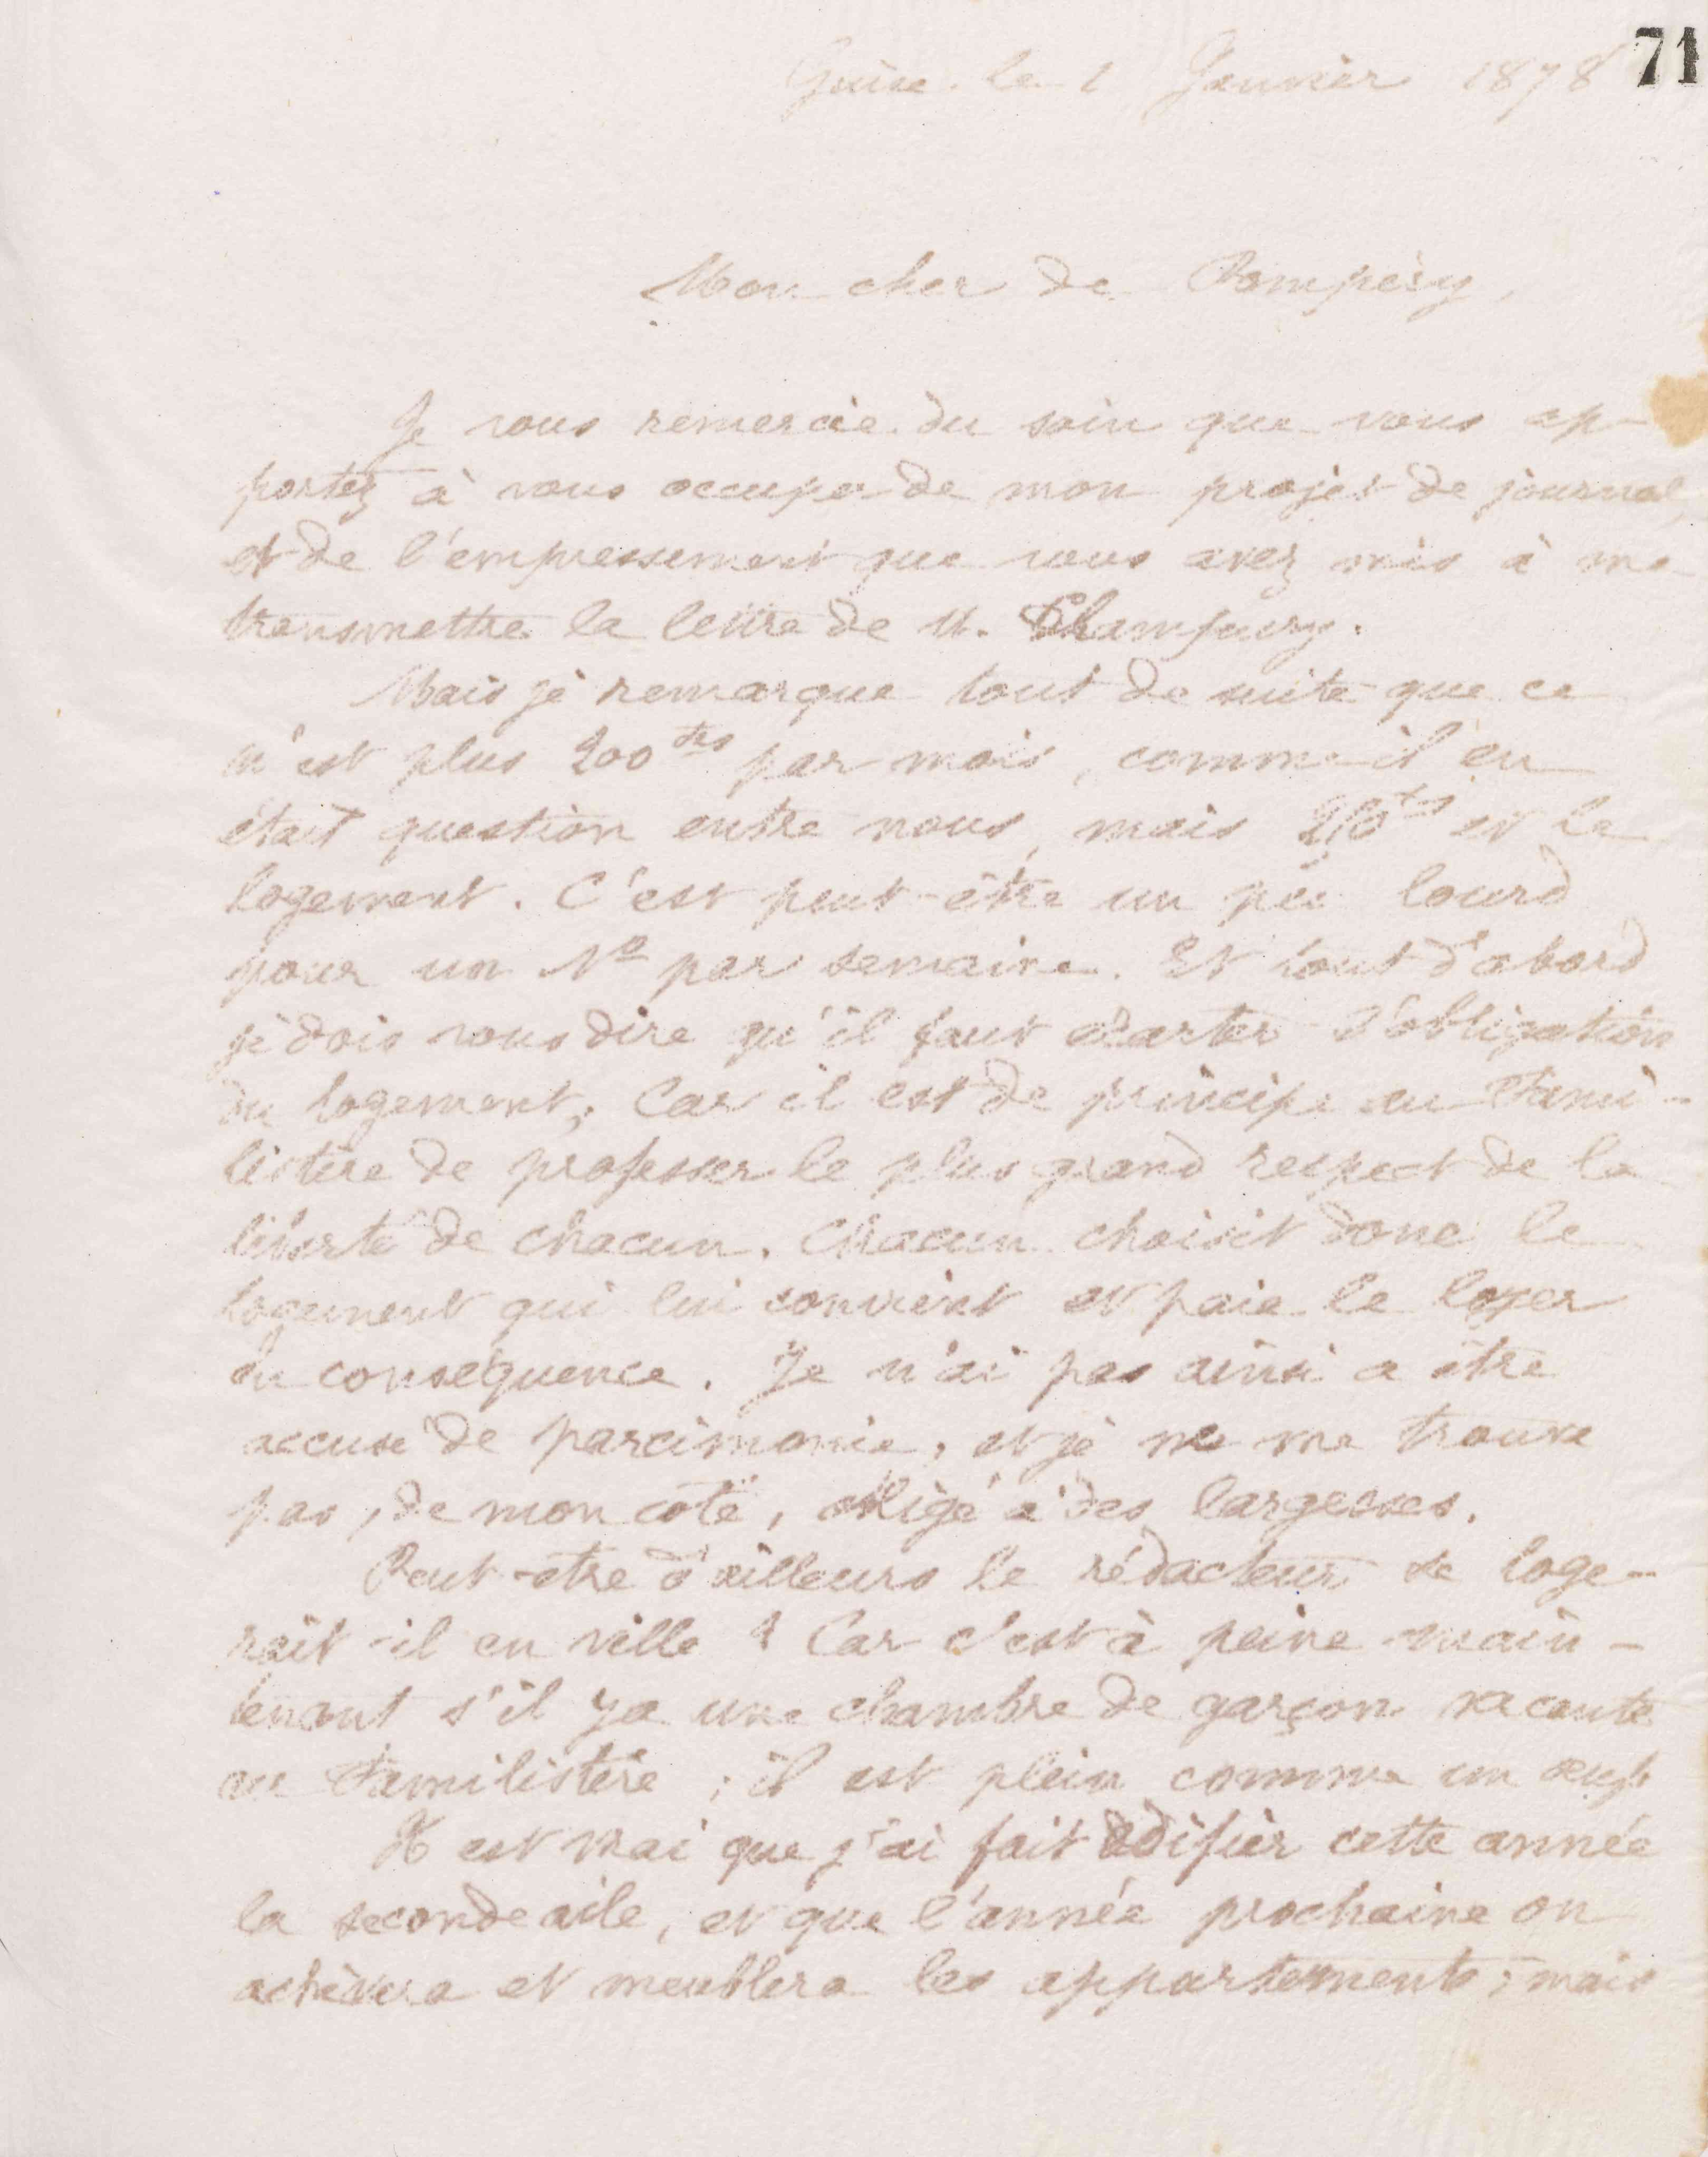 71
Guise le 1 Janvier 1878
Mon cher de Pompéry,
Je vous remercie du soin que vous ap-
portez à vous occuper de mon projet de journal,
et de l'empressement que vous avez mis à me
transmettre la lettre de M. Champury.
Mais je remarque tout de suite que ce
n'est plus 200 frs par mois, comme il en
était question entre nous, mais frs et le
logement. C'est peut-être un peu lourd
pour un No par semaine. Et tout d'abord
je dois vous dire qu'il faut écarter l'obligation
du logement; Car il est de principe au Fami-
listère de professer le plus grand respect de la
liberté de chacun. Chacun choisit donc le
logement qui lui convient et paie le loyer
en conséquence. Je n'ai pas ainsi a être
accusé de parcimonie, et je ne me trouve
pas, de mon côté, obligé à des largesses.
Peut-être d'ailleurs le rédacteur se loge-
rait-il en ville ? Car c'est à peine main-
tenant s'il y a une chambre de garçon vacante
au Familistère ; il est plein comme un œuf.
Il est vrai que j'ai fait édifier cette année
la seconde aile, et que l'année prochaine on
achèvera et meublera les appartements ; mais